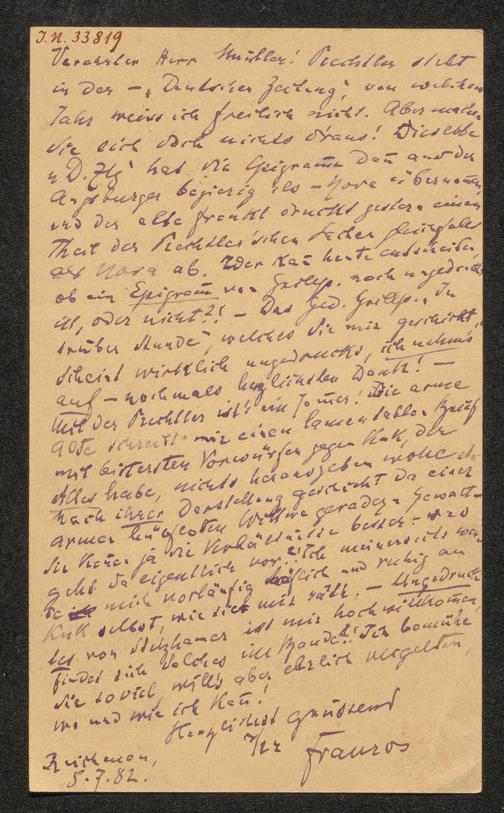 J.N. 33819
Verehrter Herr Müller! Prechtler steht
in der – „Deutschen Zeitung“, von welchem
Jahr weiss ich freilich nicht. Aber machen
Sie sich doch nichts draus! Dieselbe
„D. Ztg“ hat die Epigramme dann aus der
Augsburger begierig als – Nova übernommen
und der alte Frankl druckt gestern einen
Theil der Prechtler'schen Sachen
als Nova ab. Wer kann heute entscheiden,
ob ein Epigramm von Grillp. noch ungedruckt
ist, oder nicht?! – Das Ged. Grillp. „In
trüber Stunde“, welches Sie mir geschickt,
scheint wirklich ungedruckt, ich nehm's
auf – nochmals herzlichsten Dank! –
Mit der Prechtler ist's ein Jammer! Die arme
Alte schreibt mir einen Brief
mit bittersten Vorwürfen gegen Kuk, der
Alles habe, nichts herausgeben wolle etc.
Nach ihrer Darstellung geschieht da einer
armen Wittwe geradezu Gewalt –
Sie kennen ja die Verhältnisse besser – was
geht da eigentlich vor? Ich meinerseits
mich vorläufig höflich und ruhig an
Kuk selbst, wie Sie mir rath. – Ungedruck-
tes von Stelzhamer ist mir hochwillkommen,
findet sich Solches im Bande? Ich bemühe
Sie so viel, will's aber ehrlich vergelten,
wo und wie ich kann!
Herzlichst grüssend
Ihr Franzos
Reichenau,
5.7.82.